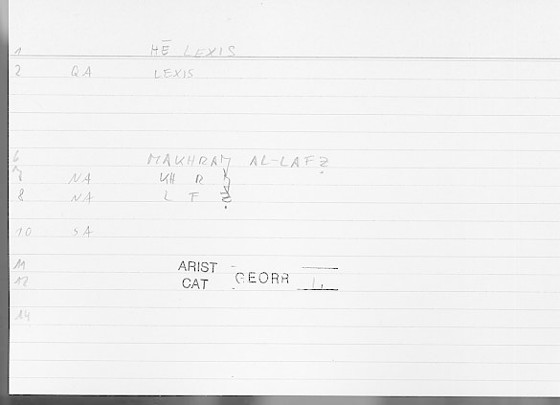 1 HĒ LEXIS
2 QA LEXIS
6 MAKHRAǦ AL-LAFẒ
7 NA KH R Ǧ
8 NA L F Ẓ
10 SA
11 ARIST
12 CAT GEORR 1,
14